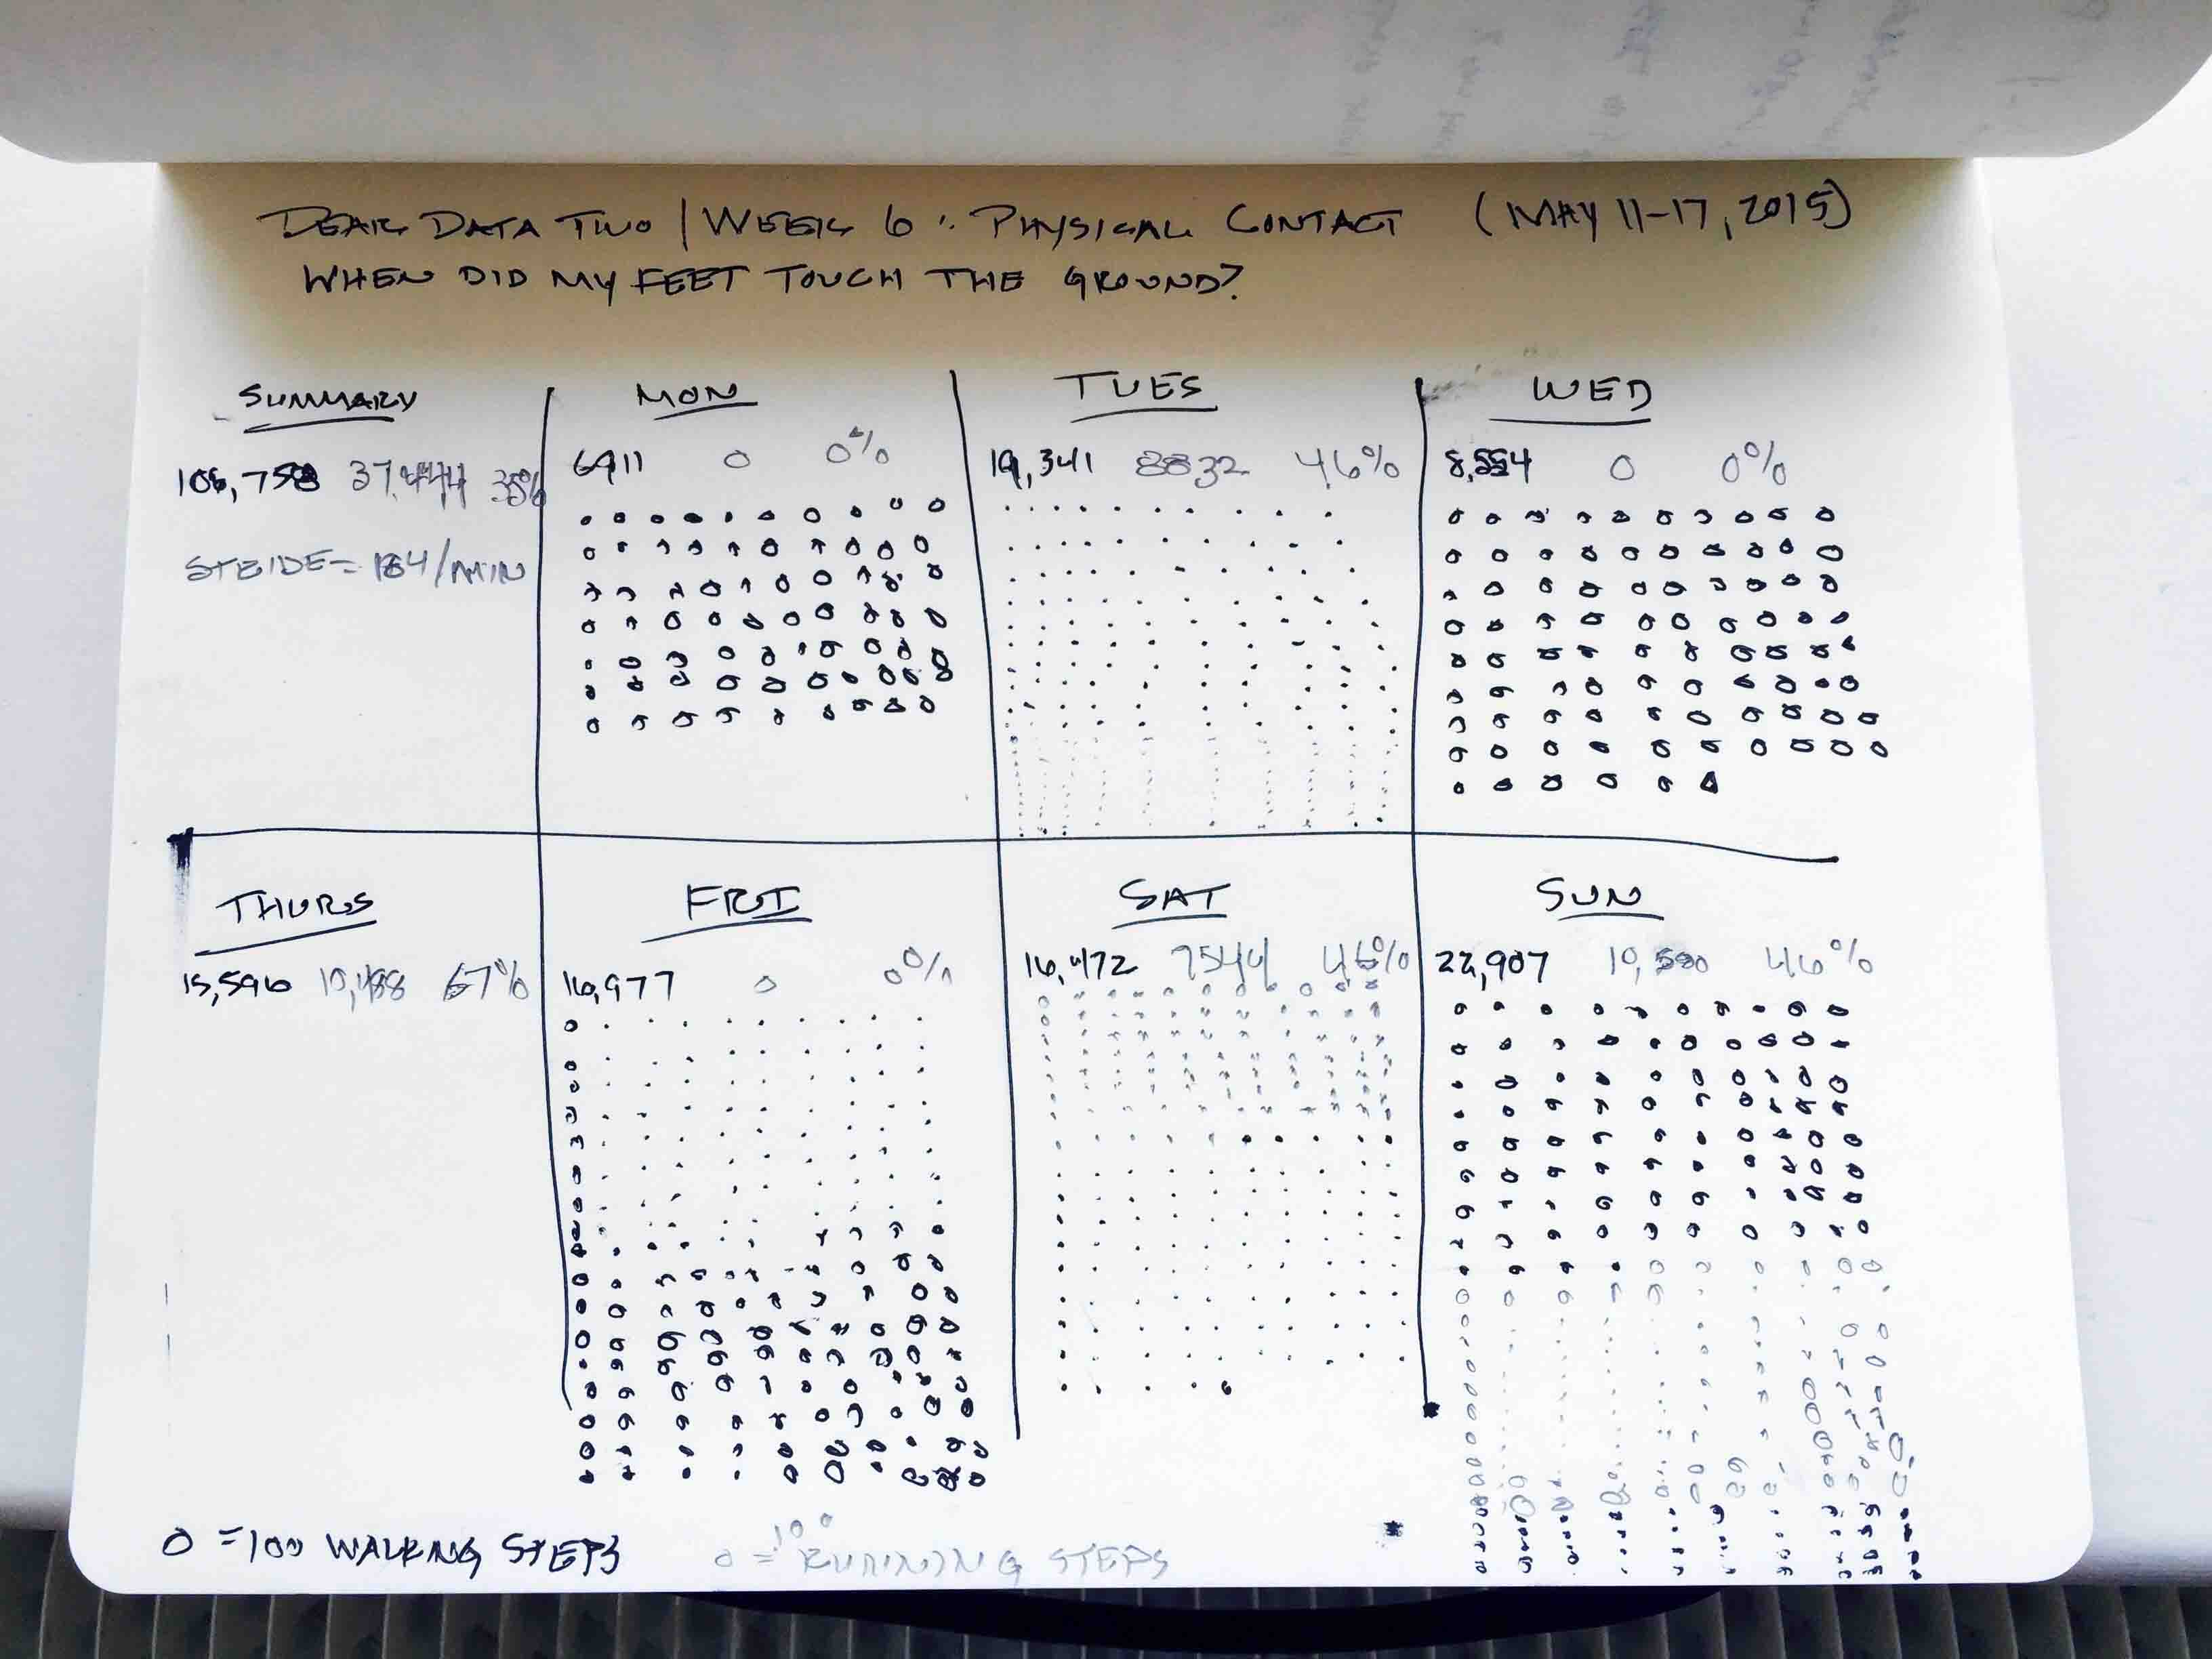 DEAR DATA TWO | WEEK 6: PHYSICAL CONTACT (MAY 11-17, 2015)
WHEN DID MY FEET TOUCH THE GROUND?
SUMMARY
106,758 37,444 35%
STRIDE = 184/MIN
MON
6911 0 0%
TUES
19,341 8832 46%
WED
8,554 0 0%
THURS
15,596 10,488 67%
FRI
16,977 0 0%
SAT
16,472 7544 46%
SUN
22,907 10,580 46%
O = 100 WALKING STEPS
O = 100 RUNNING STEPS